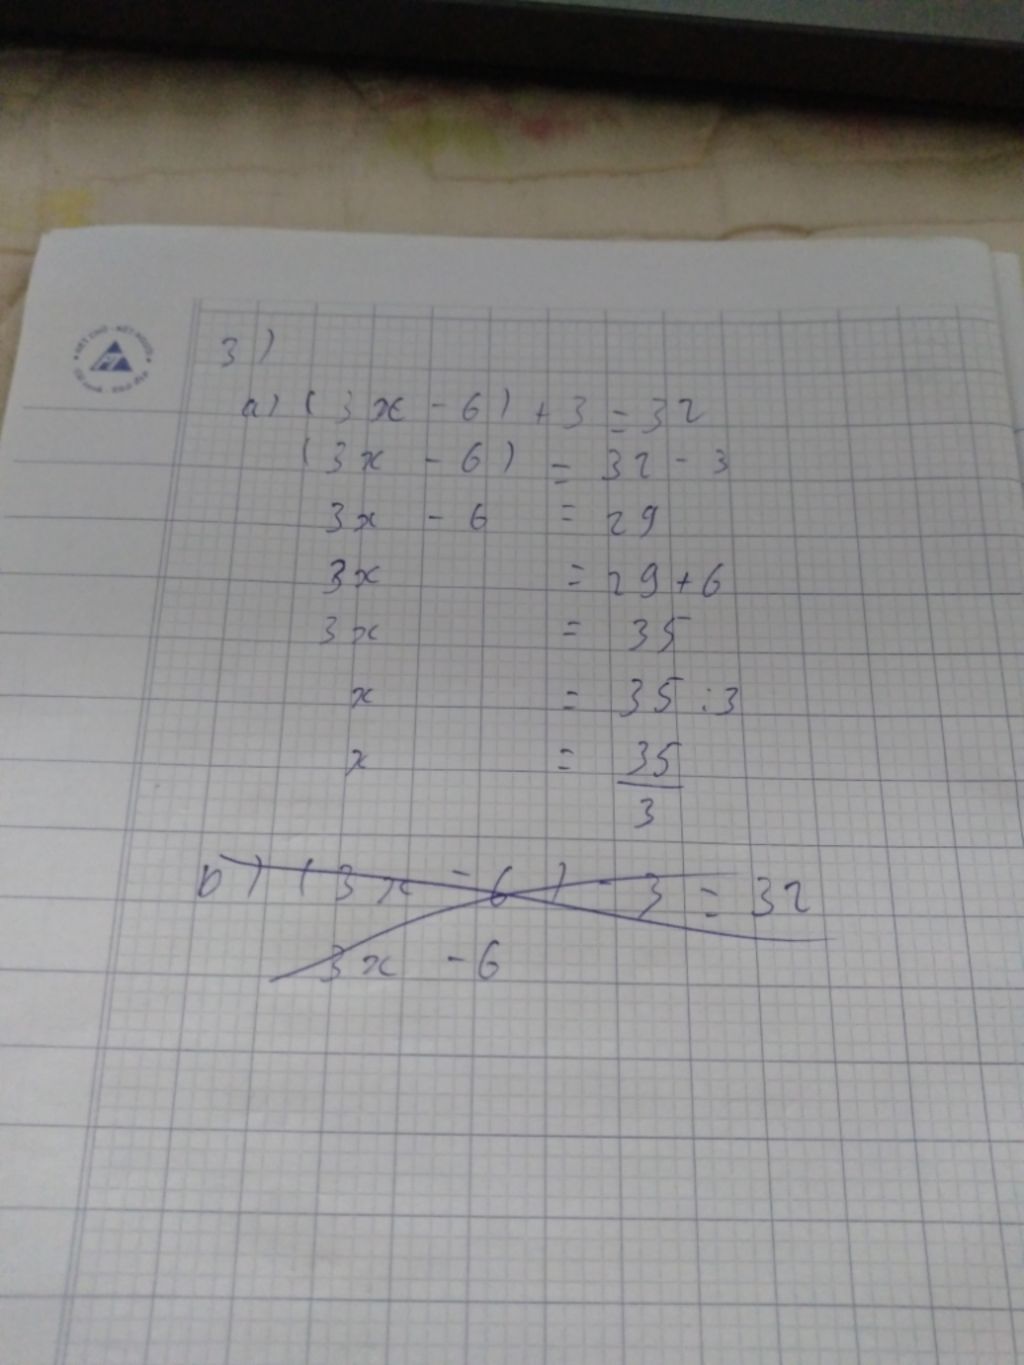 3)
a) (3x - 6) + 3 = 32
(3x - 6) = 32 - 3
3x - 6 = 29
3x = 29 + 6
3x = 35
x = 35 : 3
x = 35/3
b) (3x - 6) - 3 = 32
3x - 6